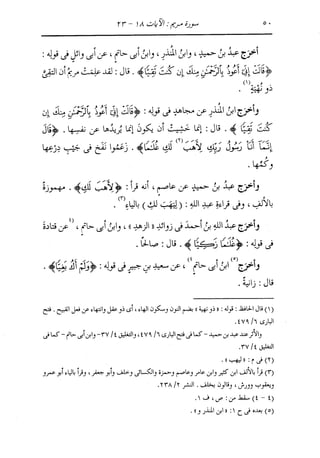 ٥٠ سورة مريم : الآيات ١٨ - ٢٣
أخرج عبدُ بنُ حميدٍ ، وابنُ المنذرِ ، وابنُ أبى حاتمٍ ، عن أبى وائلٍ فى قولِه :
﴿ قَالَتْ إِنِّي أَعُوذُ بِالرَّحْمَٰنِ مِنكَ إِن كُنتَ تَقِيًّا ﴾ . قال : لقد علِمتْ مريمُ أن التَّقىَّ
ذو نُهْيَةٍ (١) .
وأخرج ابنُ المنذرِ عن مجاهدٍ فى قولِه : ﴿ قَالَتْ إِنِّي أَعُوذُ بِالرَّحْمَٰنِ مِنكَ إِن
كُنتَ تَقِيًّا ﴾ . قال : إنما خشِيتْ أن يكونَ إنما يُريدُها عن نفسِها . ﴿ قَالَ
إِنَّمَا أَنَا رَسُولُ رَبِّكِ لِأَهَبَ (٢) لَكِ غُلَٰمًا ﴾ . زعَموا أنه نفَخ فى جَيْبِ دِرعِها
وكُمِّها .
وأخرج عبدُ بنُ حميدٍ عن عاصمٍ ، أنه قرَأ : ﴿ لِأَهَبَ لَكِ ﴾ . مهموزةً
بالألفِ ، وفى قراءةِ عبدِ اللهِ : ( لِيَهَبَ لَكِ ) بالياءِ (٣) .
وأخرج عبدُ اللهِ بنُ أحمدَ فى زوائدِ « الزهدِ » ، وابنُ أبى حاتمٍ ، (٤) عن قتادةَ
فى قولِه : ﴿ غُلَٰمًا زَكِيًّا ﴾ . قال : صالحًا .
وأخرج (٥) ابنُ أبى حاتمٍ (٤) ، عن سعيدِ بنِ جبيرٍ فى قولِه : ﴿ وَلَمْ أَكُ بَغِيًّا ﴾ .
قال : زانيةً .
(١) قال الحافظ : قوله : « ذو نهية » بضم النون وسكون الهاء ، أى ذو عقل وانتهاء عن فعل القبيح . فتح
البارى ٦/ ٤٧٩ .
والأثر عند عبد بن حميد - كما فى فتح البارى ٦/ ٤٧٩ ، والتغليق ٤/ ٣٧ - وابن أبى حاتم - كما فى
التغليق ٤/ ٣٧ .
(٢) فى م : « ليهب » .
(٣) قرأ بالألف ابن كثير وابن عامر وعاصم وحمزة والكسائى وخلف وأبو جعفر ، وقرأ بالياء أبو عمرو
ويعقوب وورش ، وقالون بخلف . النشر ٢/ ٢٣٨ .
(٤ - ٤) سقط من : ص ، ف ١ .
(٥) بعده فى ح ١ : « ابن المنذر و » .